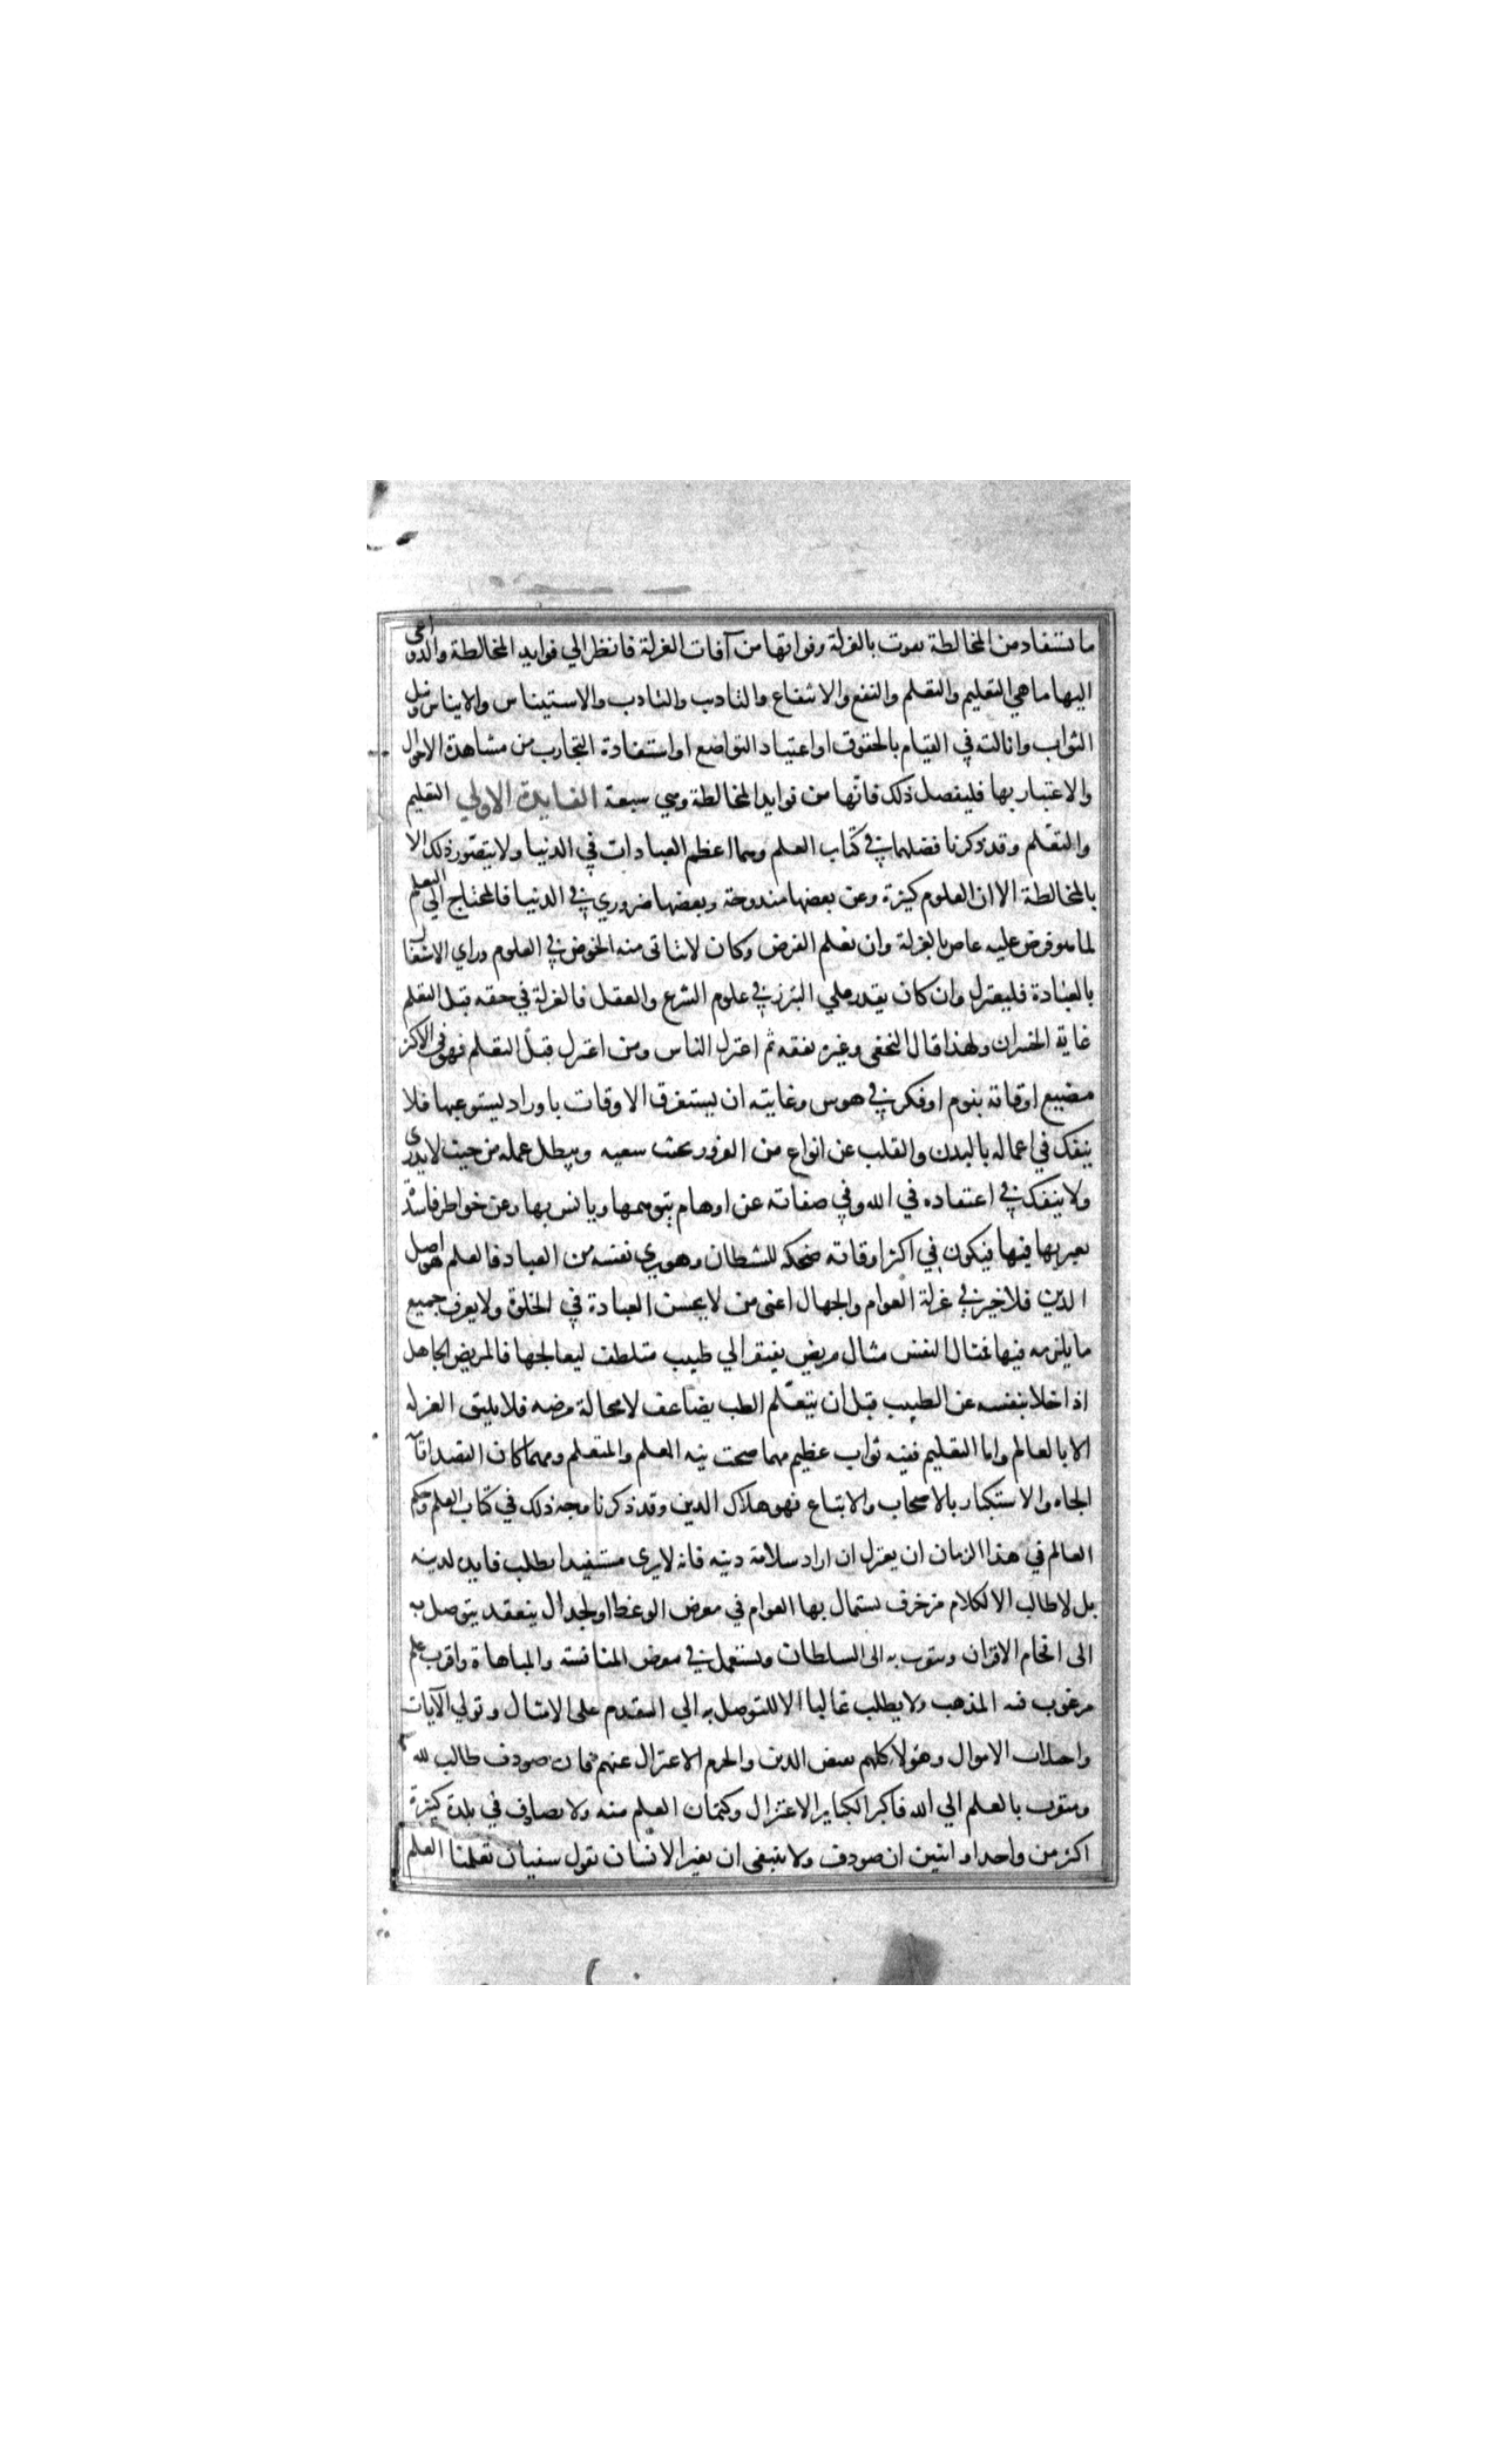 ما تستفاد من المخالطة يفوت بالعزلة وفواتها من آفات العزلة فانظر الي فوايد المخالطة والدواعي
اليها ما هي التعليم والتعلم والنفع والانتفاع والتاديب والتادب والاستيناس والايناس ونيل
الثواب وانالته في القيام بالحقوق او اعتياد التواضع او استفادة التجارب من مشاهدة الاحوال
والاعتبار بها فليفصل ذلك فانها من فوايد المخالطة وهي سبعة الفايدة الاولي التعليم
والتعلم وقد ذكرنا فضلهما في كتاب العلم وهما اعظم العبادات في الدنيا ولا يتصور ذلك الا
بالمخالطة الا ان العلوم كثيرة وعن بعضها مندوحة وبعضها ضروري في الدنيا فالمحتاج الي التعلم
لما هو فرض عليه عاص بالعزلة وان تعلم الفرض وكان لا يتاتى منه الخوض في العلوم وراي الاشتغال
بالعبادة فليعتزل وان كان يقدر علي التبرز في علوم الشرع والعقل فالعزلة في حقه قبل التعلم
غاية الخسران ولهذا قال النخعي وغيره تفقه ثم اعتزل الناس ومن اعتزل قبل التعلم فهو في الاكثر
مضيع اوقاته بنوم او فكر في هوس وغايته ان يستغرق الاوقات باوراد يستوعبها فلا
ينفك في اعماله بالبدن والقلب عن انواع من الغرور سعيه ويبطل عمله من حيث لا يدري
ولا ينفك في اعتقاده في الله وفي صفاته عن اوهام يتوهمها ويانس بها وعن خواطر فاسدة
يعتريها فيها فيكون في اكثر اوقاته ضحكه للشيطان وهو يري نفسه من العباد فالعلم هو اصل
الدين فلا خير في عزلة العوام والجهال اعنى من لا يحسن العبادة في الخلوة ولا يعرف جميع
ما يلزمه فيها فمثال النفس مثال مريض يفتقر الي طبيب متلطف ليعالجها فالمريض الجاهل
اذا خلا بنفسه عن الطبيب قبل ان يتعلم الطب يضاعف لا محالة مرضه فلا يليق العزله
الا بالعالم واما التعليم ففيه ثواب عظيم مهما صحت نيه العلم والمتعلم ومهما كان القصد اقامة
الجاه والاستكبار بالاصحاب والاتباع فهو هلاك الدين وقد ذكرنا وجه ذلك في كتاب العلم وحكم
العالم في هذا الزمان ان يعتزل ان اراد سلامة دينه فانه لا يرى مستفيدا يطلب فايده لدينه
بل لا طالب الا لكلام مزخرف يستمال بها العوام في معرض الوعظ او لجدال ينعقد يتوصل به
الى افحام الاقران ويتقرب به الى السلطان ويستعمل في معرض المنافسة والمباهاة واقرب علم
مرغوب فيه المذهب ولا يطلب غالبا الا للتوصل به الي التقدم على الامثال وتولي الآيات
واجتلاب الاموال وهولا كلهم الدين والحزم الاعتزال عنهم فان صودف طالب لله
ومتقرب بالعلم الي الله فاكبر الكباير الاعتزال وكتمان العلم منه ولا يصادف في بلدة كبيرة
اكثر من واحد او اثنين ان صودف ولا ينبغي ان يغتر الانسان بقول سفيان تعلمنا العلم